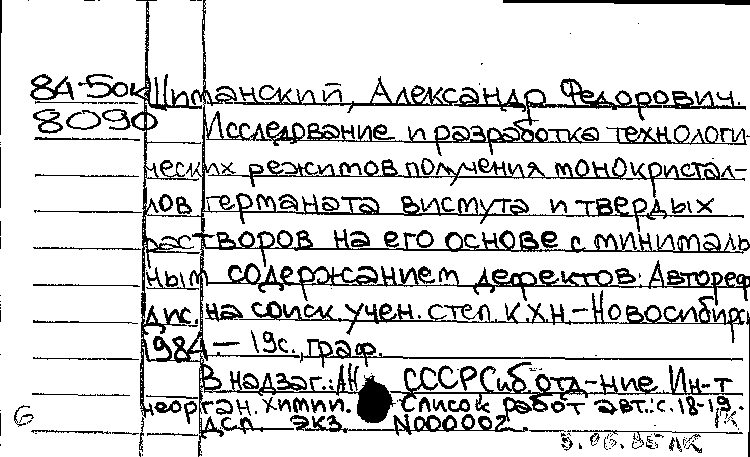 84-50к Шиманский, Александр Федорович.
8090 Исследование и разработка технологи-
ческих режимов получения монокристал-
лов германата висмута и твердых
растворов на его основе с минималь
ным содержанием дефектов: Автореф
дис. на соиск. учен. степ. к.х.н.-Новосибирск
1984.- 19с., граф.
В надзаг.: АН СССР Сиб. отд-ние Ин-т
неорган. химии. Список работ авт.: с. 18-19.
ДСП. экз. N000002.
5.06.85